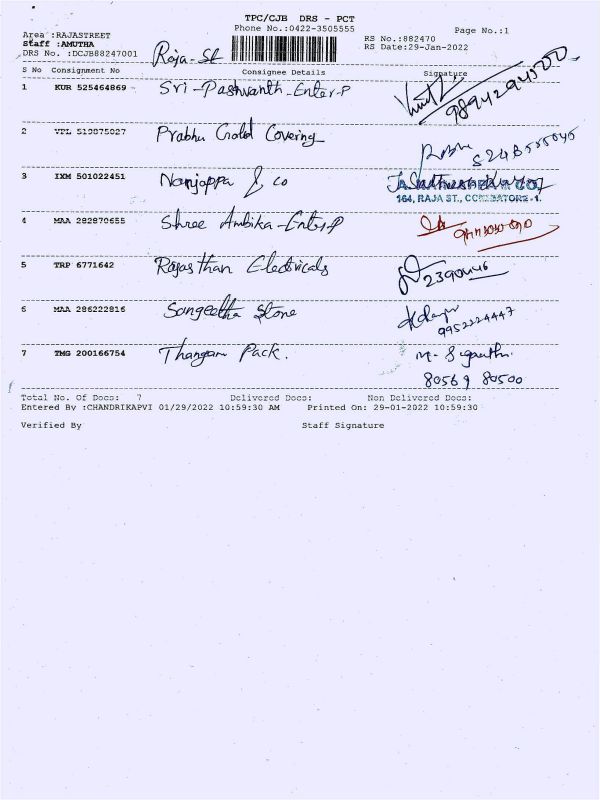 TPC/CJB DRS - PCT
Phone No.:0422-3505555
Page No.:1
Area :RAJASTREET
Staff :AMUTHA
DRS No. :DCJB88247001
Raja-St
RS No.:882470
RS Date:29-Jan-2022
S No Consignment No Consignee Details Signature
1 KUR 525464869 Sri-Pashvanth-Enter-P
9894294500
2 VPL 513875027 Prabhu Gold Covering
3 IXM 501022451 Nanjappa & co
164, RAJA ST., COIMBATORE-1.
4 MAA 282870655 Shree Ambika-Enter-P
5 TRP 6771642 Rajasthan Electricals
2390446
6 MAA 286222816 Sangeetha Stone
9952224447
7 TMG 200166754 Thangam Pack.
80569 80500
Total No. Of Docs: 7 Delivered Docs: Non Delivered Docs:
Entered By :CHANDRIKAPVI 01/29/2022 10:59:30 AM Printed On: 29-01-2022 10:59:30
Verified By Staff Signature